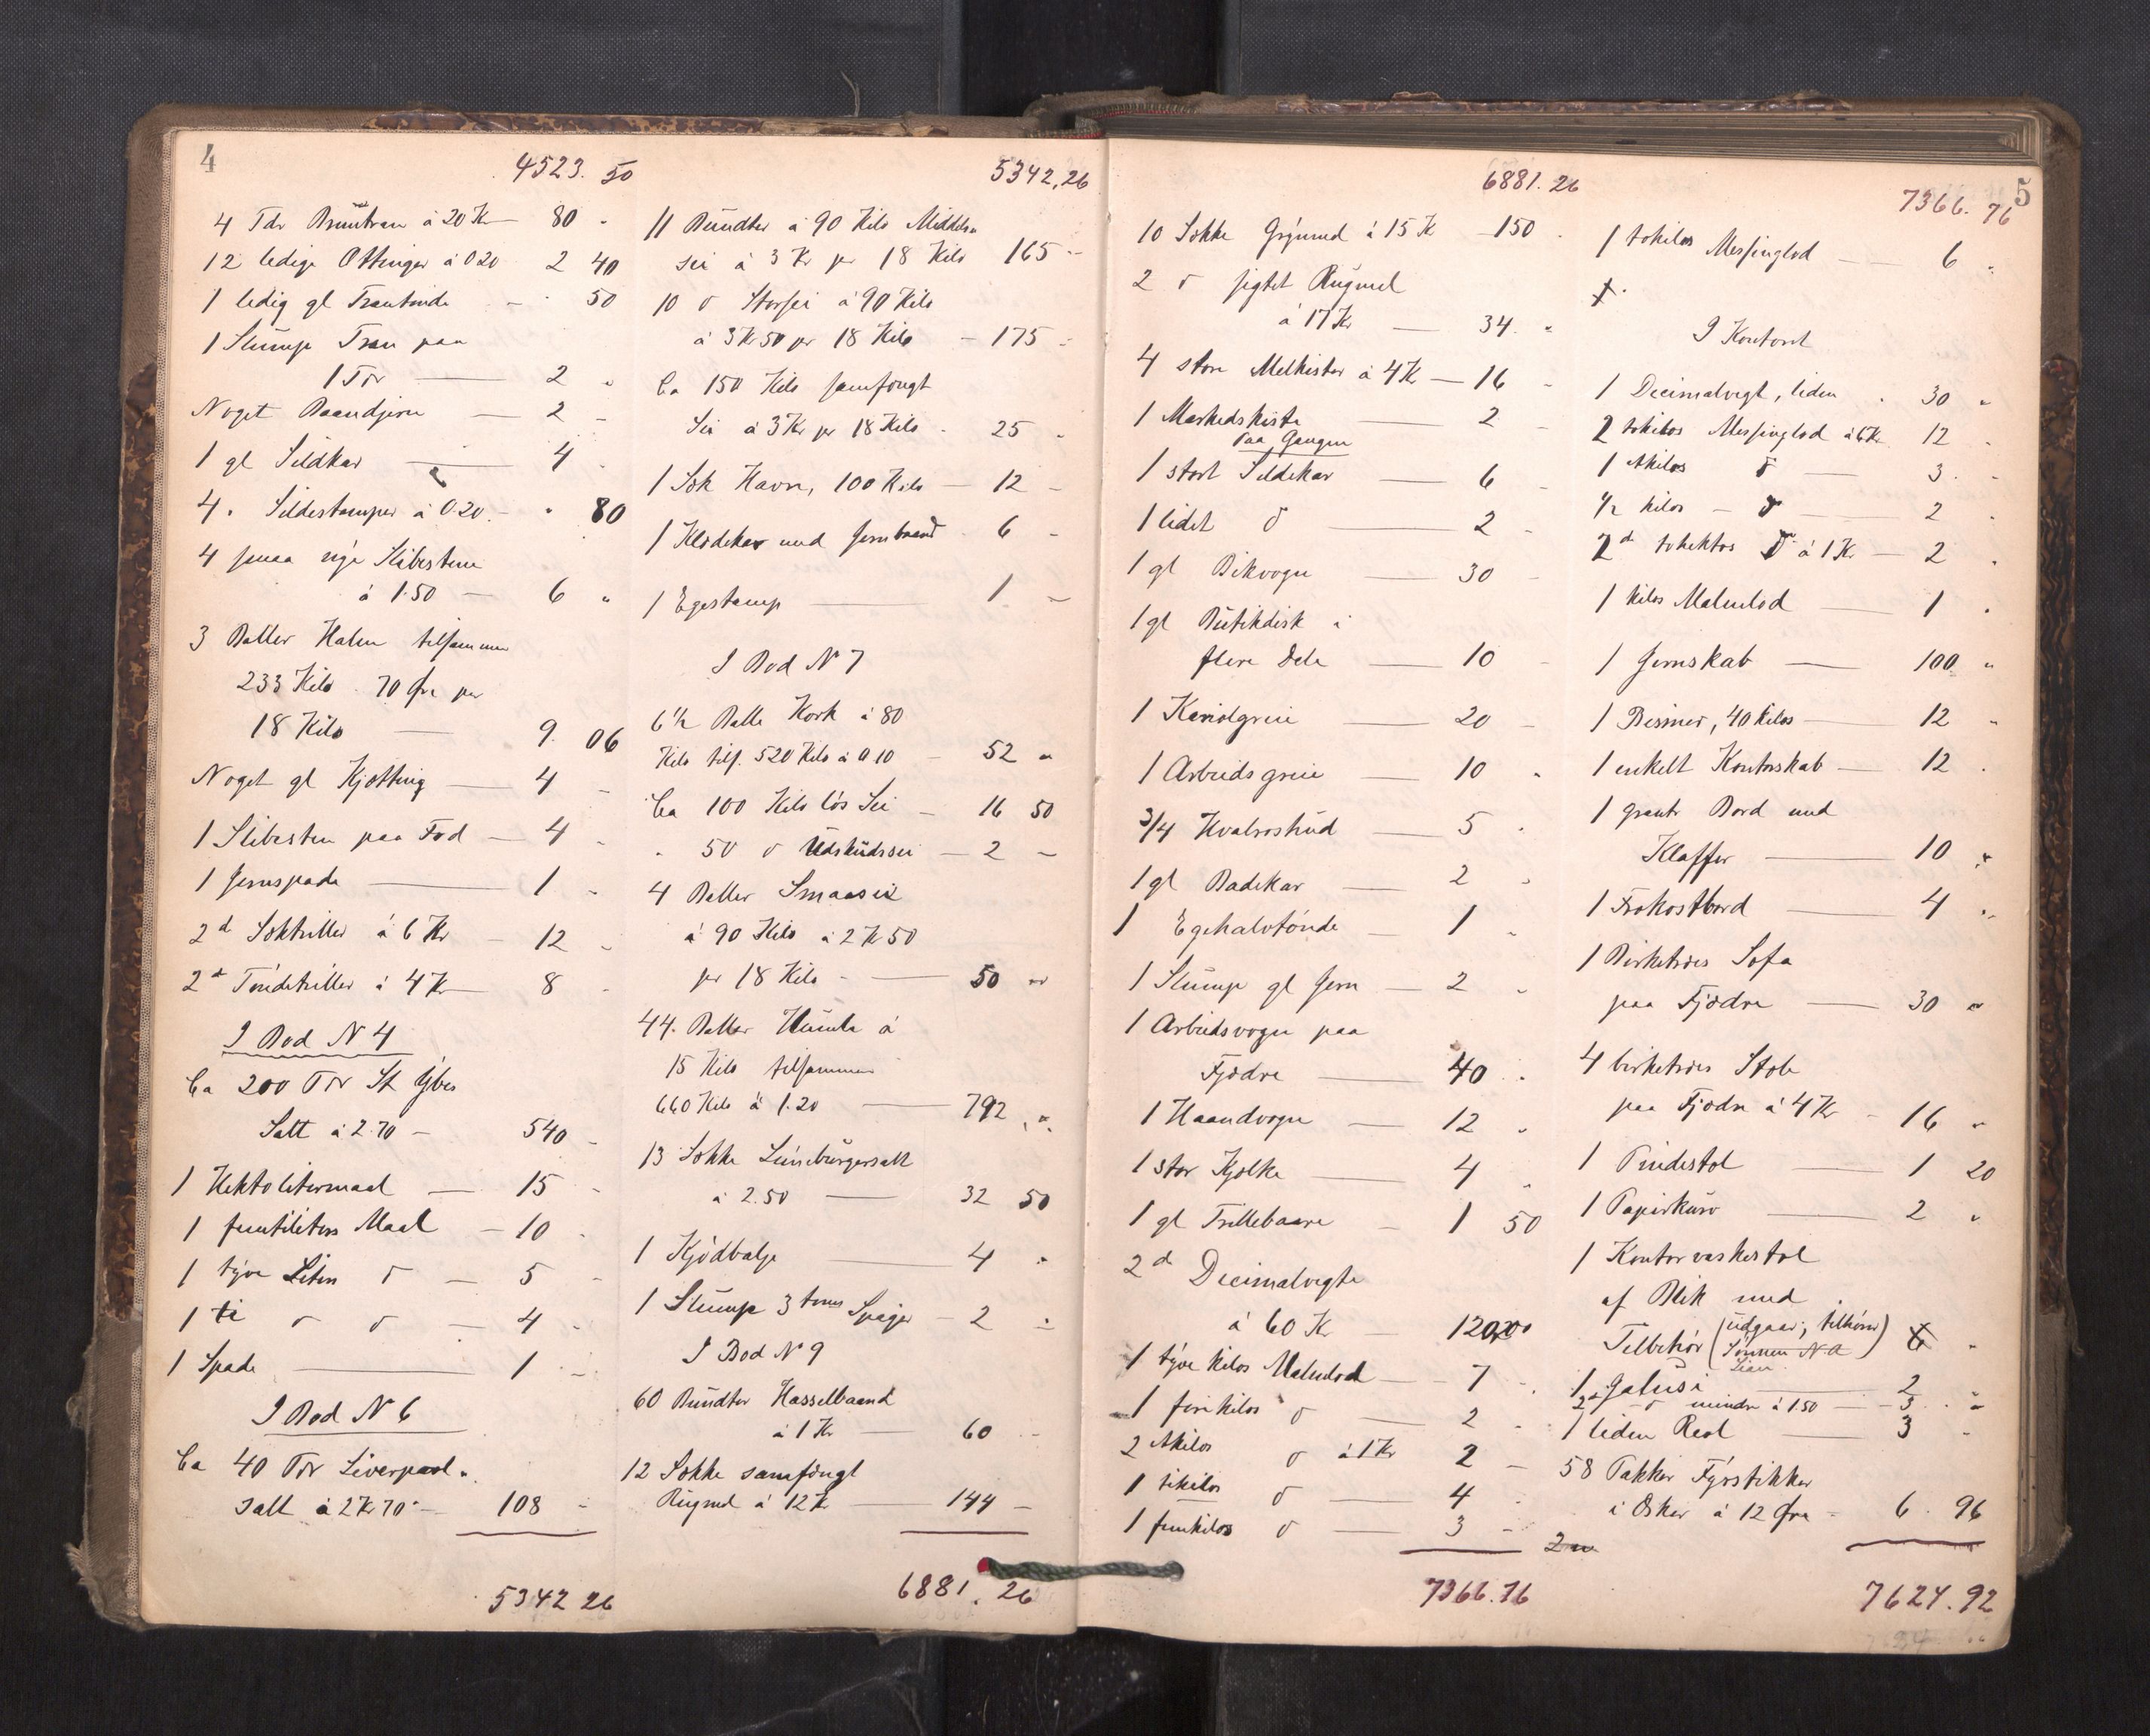 4
4523. 50
4 Tdr Bruntran à 20 Kr — 80 -
12 ledige Ottinger à 0 20 2 40
1 ledig gl Trantønde - - 50
1 Slump Tran paa
1 Tdr — 2 -
Noget Baandjern — 2 -
1 gl Sildkar — 4 -
4 . Sildestamper à 0.20. - " 80
4 smaa nye Slibestene
à 1.50 — 6 "
3 Baller Halm tilsammen
233 Kilo . 70 Øre per
18 Kilo — 9. 06
Noget gl Kjetting — 4 -
1 Slibesten paa Fod — 4 -
1 Jernspade — 1 -
2d Sæktriller à 6 Kr - 12 -
2d Töndetriller à 4 Kr — 8 -
I Bod N 4
Ca 200 Tdr St Ybes
Salt à 2.70 - 540 -
1 Hektolitermaal — 15 -
1 femtiliters Maal — 10 -
1 tyve Liters d — 5 -
1 ti d d — 4 -
1 Spade — 1 -
I Bod N 6
Ca 40 Tdr Liverpool-
salt à 2 Kr 70 - 108 -
5342 26
5342,26
11 Bundter à 90 Kilo Middels-
sei à 3 Kr pr 18 Kilo 165 -
10 d Storsei à 90 Kilo
à 3 Kr 50 pr 18 Kilo — 175 -
Ca 150 Kilo samfængt
Sei à 3 Kr pr 18 Kilo - 25 -
1 Sæk Havre, 100 Kilo — 12 -
1 Klædekar med Jernbaand - 6 -
1 Egestamp — 1 -
I Bod N 7
6 1/2 Balle Kork à 80
Kilo tils. 520 Kilo à 0 10 — 52 "
Ca 100 Kilo lös Sei — 16 50
" 50 d Udskudssei — 2 -
4 Baller Smaasei
à 90 Kilo à 2 Kr 50
pr 18 Kilo - — 50 "
44. Baller Humle à
15 Kilo tilsammen
660 Kilo à 1.20 — 792 "
13 Sække Lüneburgersalt
à 2.50 — 32 50
1 Kjödbalje — 4 "
1 Slump 3 toms Spiger - 2 -
I Bod N 9
60 Bundter Hasselbaand
à 1 Kr — 60 -
12 Sække samfængt
Rugmel à 12 Kr — 144 -
6881. 26
5
6881. 26
10 Sække Grynmel à 15 Kr — 150 -
2 d sigtet Rugmel
à 17 Kr — 34. "
4 store Melkister à 4 Kr — 16 -
1 Markedskiste — 2 -
Paa Gangen
1 stort Sildekar — 6 -
1 lidet d — 2 -
1 gl Bikvogn — 30 -
1 gl Butikdisk i
flere Dele — 10 -
1 Kariolgreie — 20 -
1 Arbeidsgreie — 10 "
3/4 Hvalroshud — 5 "
1 gl Badekar — 2 -
1 Egehalvtönde — 1 -
1 Slump gl Jern — 2 -
1 Arbeidsvogn paa
Fjædre — 40 "
1 Haandvogn — 12 "
1 stor Kjælke — 4 "
1 gl Trillebaare — 1 50
2d Decimalvegte
à 60 Kr — 120,00
1 tyve kilos Malmlod — 7 -
1 firekilos d — 2 -
2 1kilos d à 1 Kr 2 -
1 tikilos d — 4 -
1 femkilos d — 3 -
7366.76
7366. 76
1 tokilos Messinglod — 6 "
I Kontoret
1 Decimalvegt, liden - 30 "
2 tokilos Messinglod à 6 Kr 12 -
1 1kilos d — 3 -
1/2 kilos — d — 2 -
2d tohektos d à 1 Kr — 2 -
1 kilos Malmlod — 1 "
1 Jernskab — 100 "
1 Bismer, 40 kilos — 12 "
1 enkelt Kontorskab — 12 .
1 grant Bord med
Klaffer — 10 "
1 Frokostbord — 4 "
1 Birketræs Sofa
paa Fjædre — 30 "
4 birketræs Stole
paa Fjædre à 4 Kr - 16 "
1 Pindestol — 1 20
1 Papirkurv — 2 "
1 Kontorvaskestol
af Blik med
Tilbehør (udgaar, tilhører) 6 -
1 Galusi — 2
2d d mindre à 1.50 — 3 . "
1 liden Reol — 3 -
58 Pakker Fyrstikker
i Æsker à 12 Øre - 6. 96
7624.92